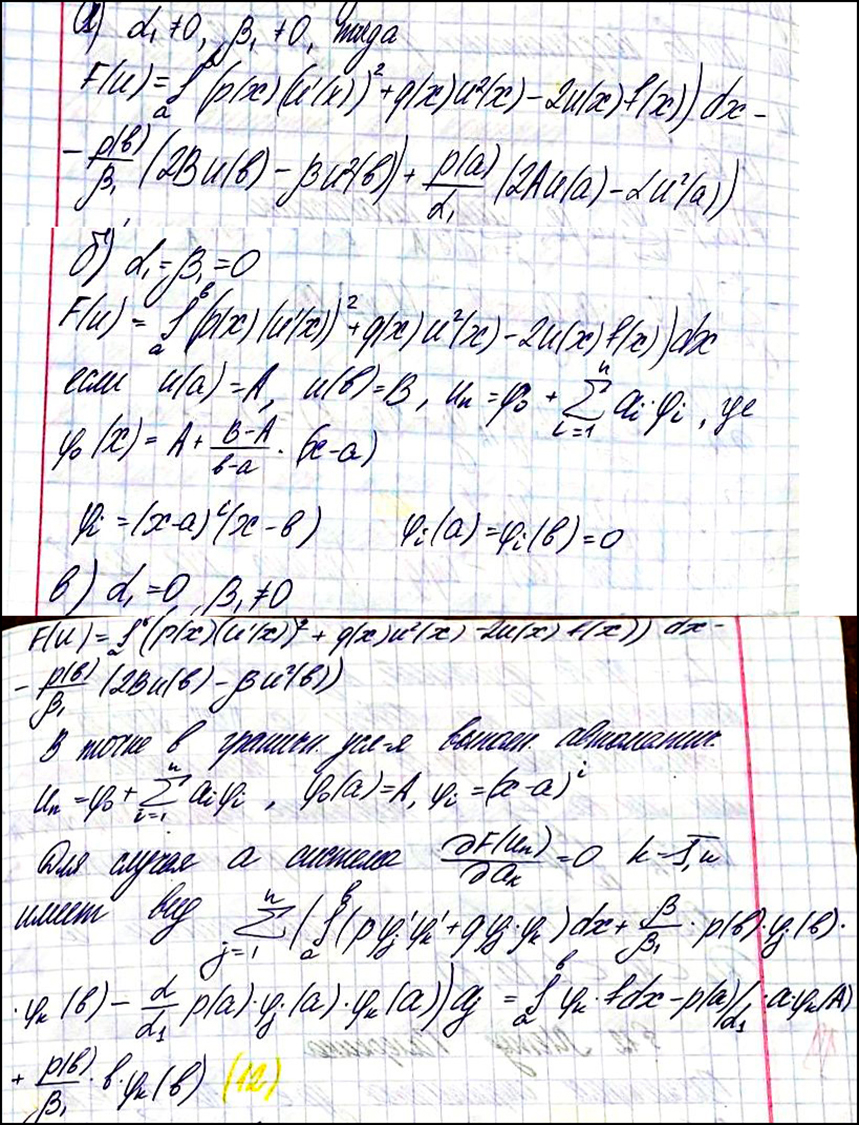 а) α₁ ≠ 0, β₁ ≠ 0, тогда
F(u) = ∫ₐᵇ (p(x)(u'(x))² + q(x)u²(x) - 2u(x)f(x)) dx -
- p(в)/β₁ (2Bu(в) - βu²(в)) + p(a)/α₁ (2Au(a) - αu²(a))
б) α₁ = β₁ = 0
F(u) = ∫ₐᵇ (p(x)(u'(x))² + q(x)u²(x) - 2u(x)f(x)) dx
если u(a) = A, u(в) = B, uₙ = φ₀ + ∑ᵢ₌₁ⁿ aᵢ·φᵢ, где
φ₀(x) = A + (B-A)/(в-a) · (x-a)
φᵢ = (x-a)ⁱ(x-в) φᵢ(a) = φᵢ(в) = 0
в) α₁ = 0, β₁ ≠ 0
F(u) = ∫ₐᵇ (p(x)(u'(x))² + q(x)u²(x) - 2u(x)f(x)) dx -
- p(в)/β₁ (2Bu(в) - βu²(в))
В точке в граничн. усл-я выполн. автоматич.
uₙ = φ₀ + ∑ᵢ₌₁ⁿ aᵢφᵢ, φ₀(a) = A, φᵢ = (x-a)ⁱ
Для случая а система ∂F(uₙ)/∂aₖ = 0 k = 1,n
имеет вид ∑ⱼ₌₁ⁿ (∫ₐᵇ (pφⱼ'φₖ' + qφⱼ·φₖ) dx + β/β₁ · p(в)·φⱼ(в)·
·φₖ(в) - α/α₁ p(a)·φⱼ(a)·φₖ(a)) aⱼ = ∫ₐᵇ φₖ·fdx - p(a)/α₁ · a·φₖ(A)
+ p(в)/β₁ · в·φₖ(в) (12)